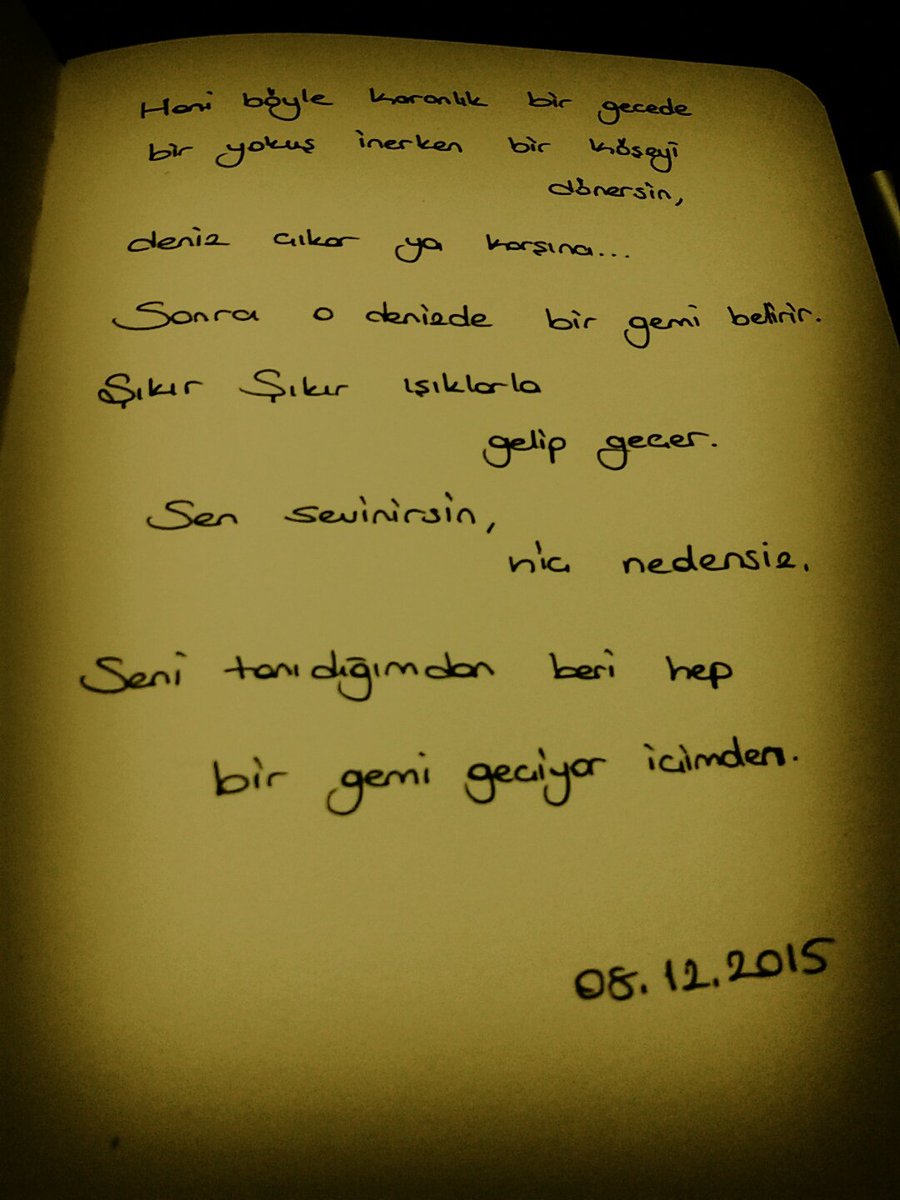 Hani böyle karanlık bir gecede
bir yokuş inerken bir köşeyi
dönersin,
deniz çıkar ya karşına...
Sonra o denizde bir gemi belirir.
Şıkır Şıkır ışıklarla
gelip geçer.
Sen sevinirsin,
hiç nedensiz.
Seni tanıdığımdan beri hep
bir gemi geçiyor içimden.
08.12.2015